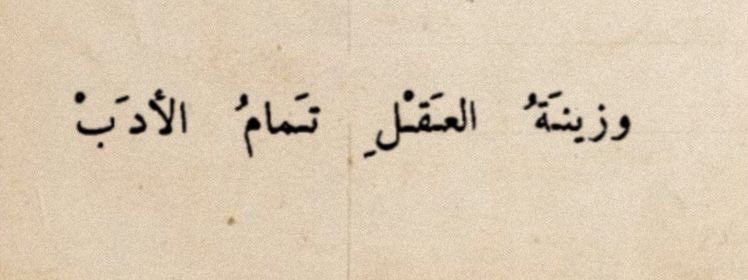 وزينَةُ العَقْلِ تَمامُ الأدَبْ